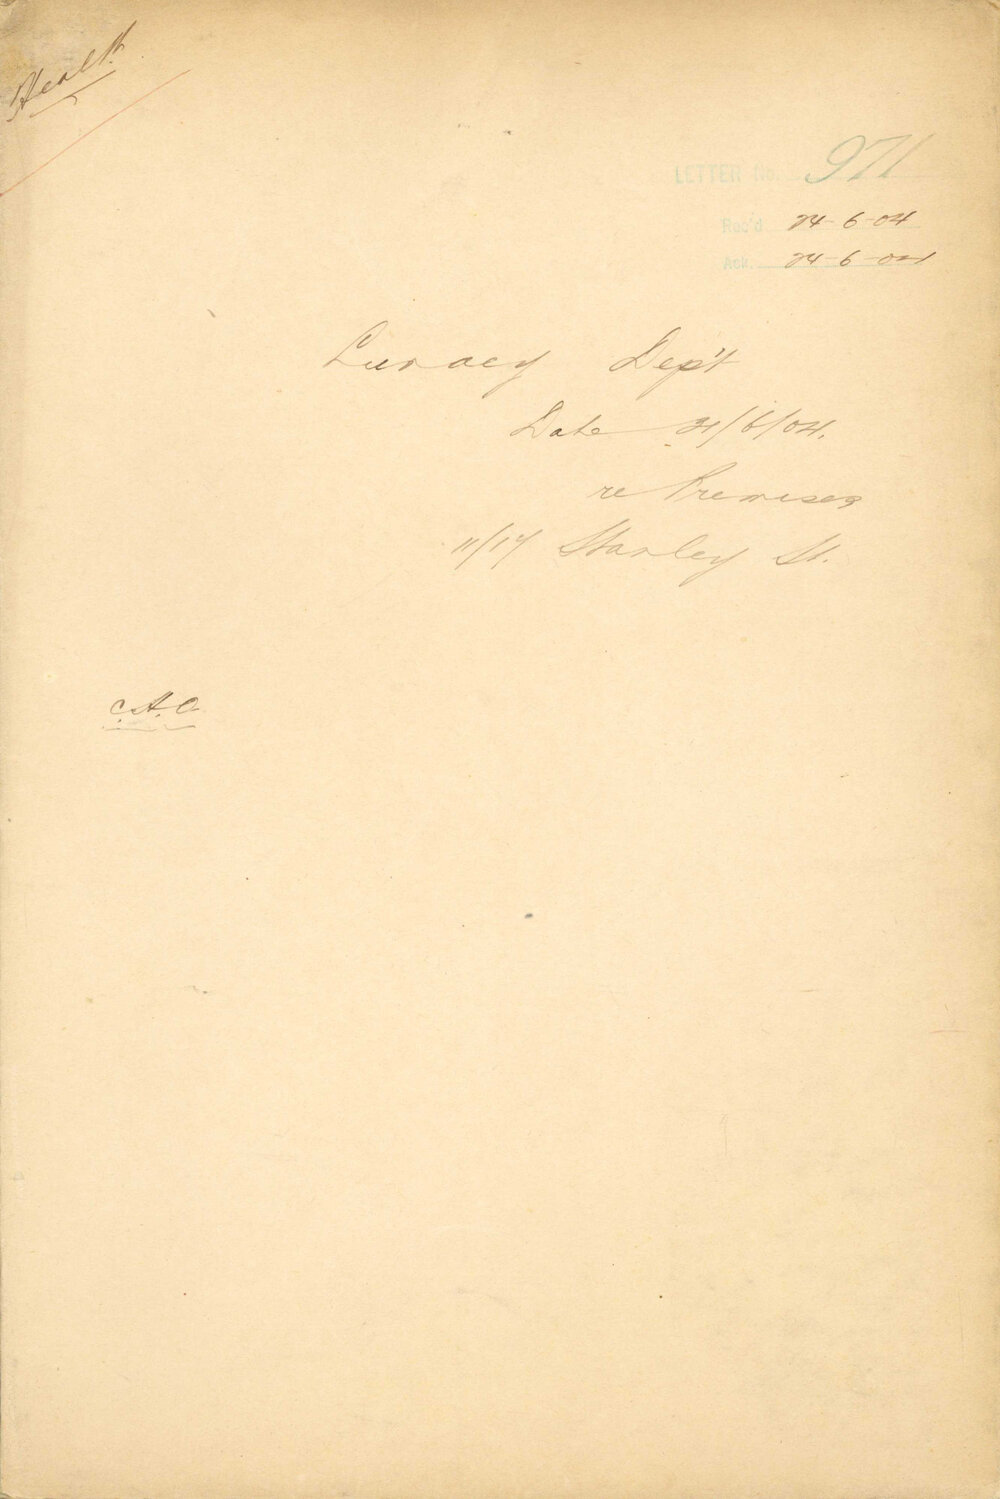 Health
LETTER No. 971
Rec'd 24-6-04
Ack. 24-6-04
Lunacy Dep't
Date 21/6/04.
re Premises
11/17 Stanley St.
C.H.O.